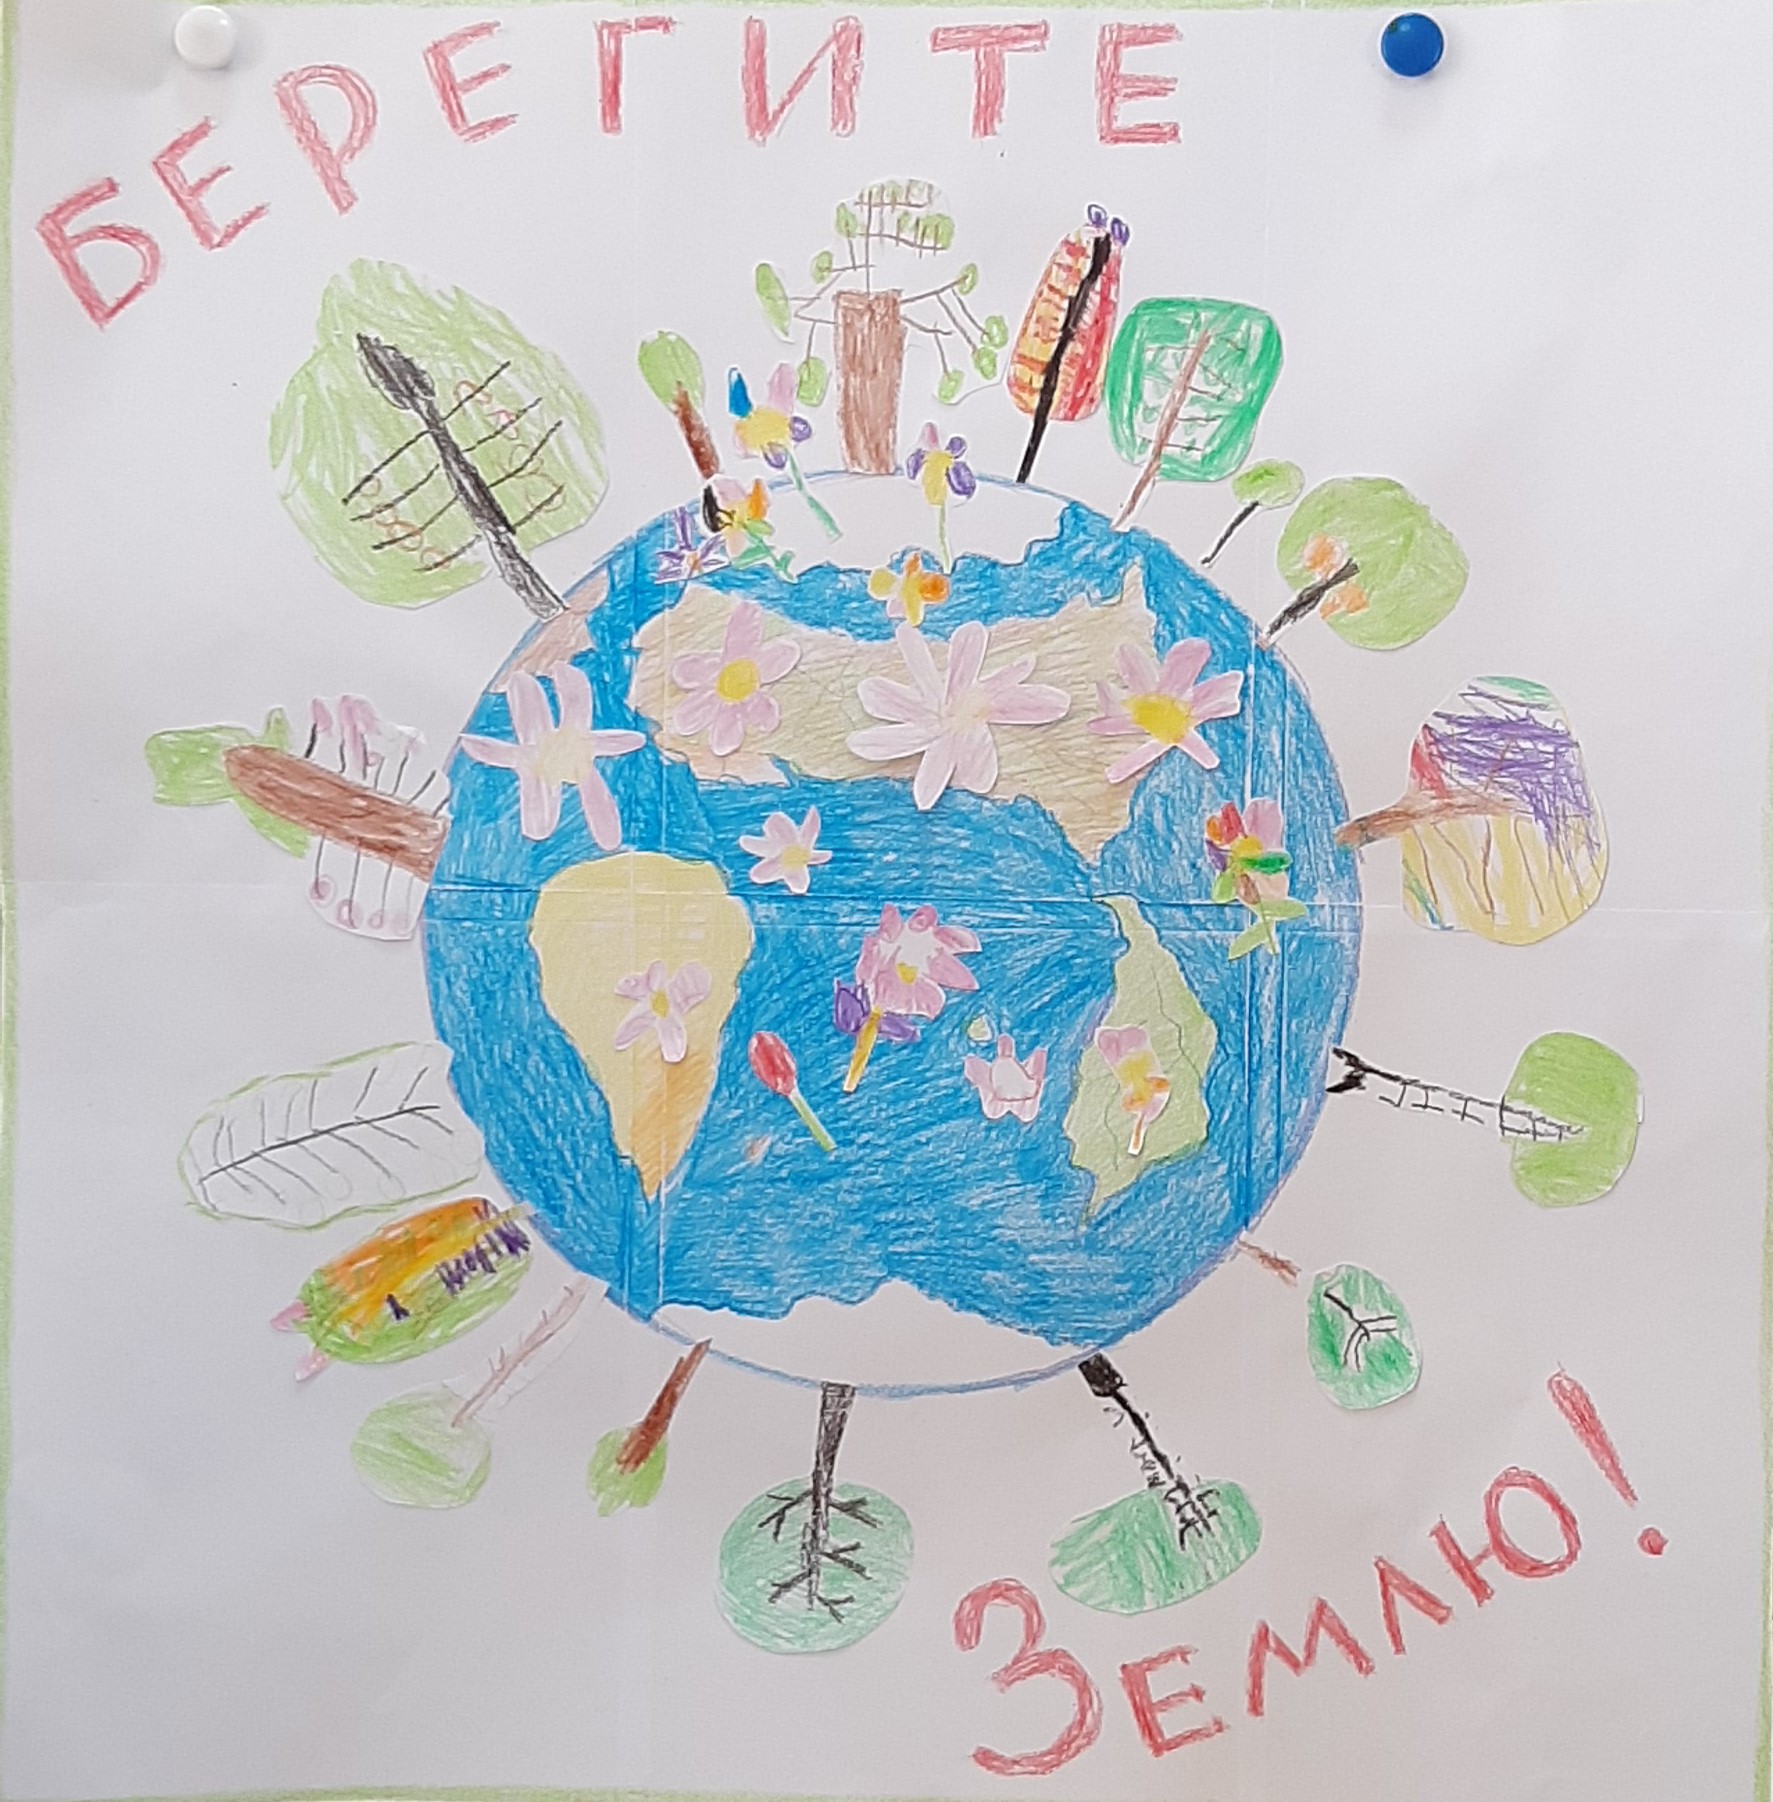 БЕРЕГИТЕ
ЗЕМЛЮ!